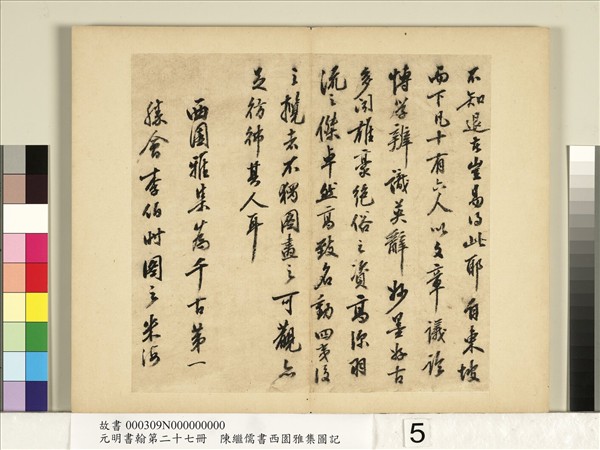 不知退者豈易得此耶自東坡
而下凡十有六人以文章議論
博學辨識英辭妙墨好古
多聞雄豪絕俗之資高僧羽
流之傑卓然高致名動四夷後
之攬者不獨圖畫之可觀亦
足彷彿其人耳
西園雅集為千古第一
勝會李伯時圖之米海
故書 000309N000000000
元明書翰第二十七冊 陳繼儒書西園雅集圖記
5